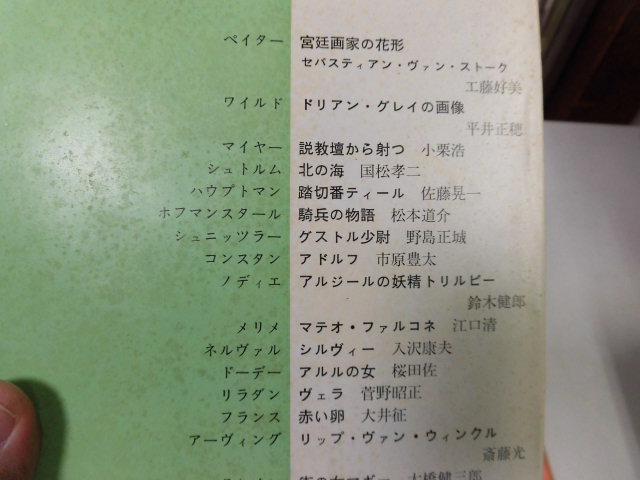 ペイター 宮廷画家の花形
セバスティアン・ヴァン・ストーク
工藤好美
ワイルド ドリアン・グレイの画像
平井正穂
マイヤー 説教壇から射つ 小栗浩
シュトルム 北の海 国松孝二
ハウプトマン 踏切番ティール 佐藤晃一
ホフマンスタール 騎兵の物語 松本道介
シュニッツラー グストル少尉 野島正城
コンスタン アドルフ 市原豊太
ノディエ アルジールの妖精トリルビー
鈴木健郎
メリメ マテオ・ファルコネ 江口清
ネルヴァル シルヴィー 入沢康夫
ドーデー アルルの女 桜田佐
リラダン ヴェラ 菅野昭正
フランス 赤い卵 大井征
アーヴィング リップ・ヴァン・ウィンクル
斎藤光
街の女マギー 大橋健三郎